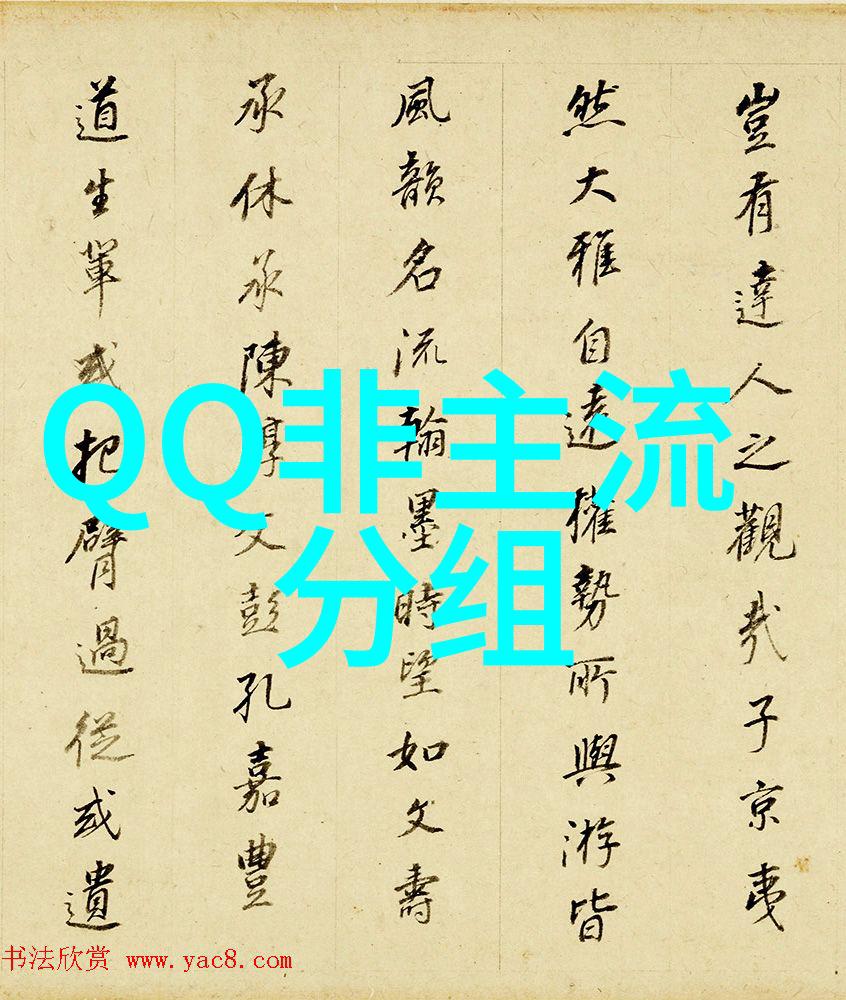 豈有達人之觀哉子京夷
然大雅自遠權勢所與游皆
風韻名流翰墨時望如文壽
承休承陳淳文彭孔嘉豐
道生輩或把臂過從或遺
QQ非主流
分组
书法欣赏 www.yac8.com